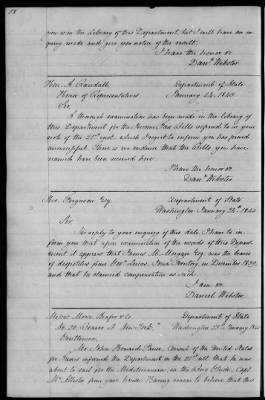 58
you was in the Library of this Department, but I will have an in
quiry made and give you notice of the result.
I have the honor &c
Danl Webster
Hon. A. Randall
Department of State
House of Representatives
January 24, 1843
Sir
A thorough examination has been made in the Library of
this Department for the Income Tax Bills referred to in your
note of the 21st inst. which I regret to inform you has proved
unsuccessful. There is no evidence that the Bills you have
named have been received here
I have the honor &c
Danl Webster
Ferguson Esq.
Department of State
Washington January 24th 1843
Sir
In reply to your enquiry of this date I have to in
form you that upon examination of the records of this Depart
ment it appears that James M. Morgan Esq. was the bearer
of despatches from Gov. Lucas, Iowa Territory, in December 1839,
and that he claimed compensation as such.
I am &c
Daniel Webster
Department of State
New York
Washington 25th January 1843
Gentlemen,
Mr. John Howard Payne Consul of the United States
for Tunis informed the Department on the 21st ult. that he was
about to sail for the Mediterranean, in the Brig Clyde, Capt
from your house. Having reason to believe that this